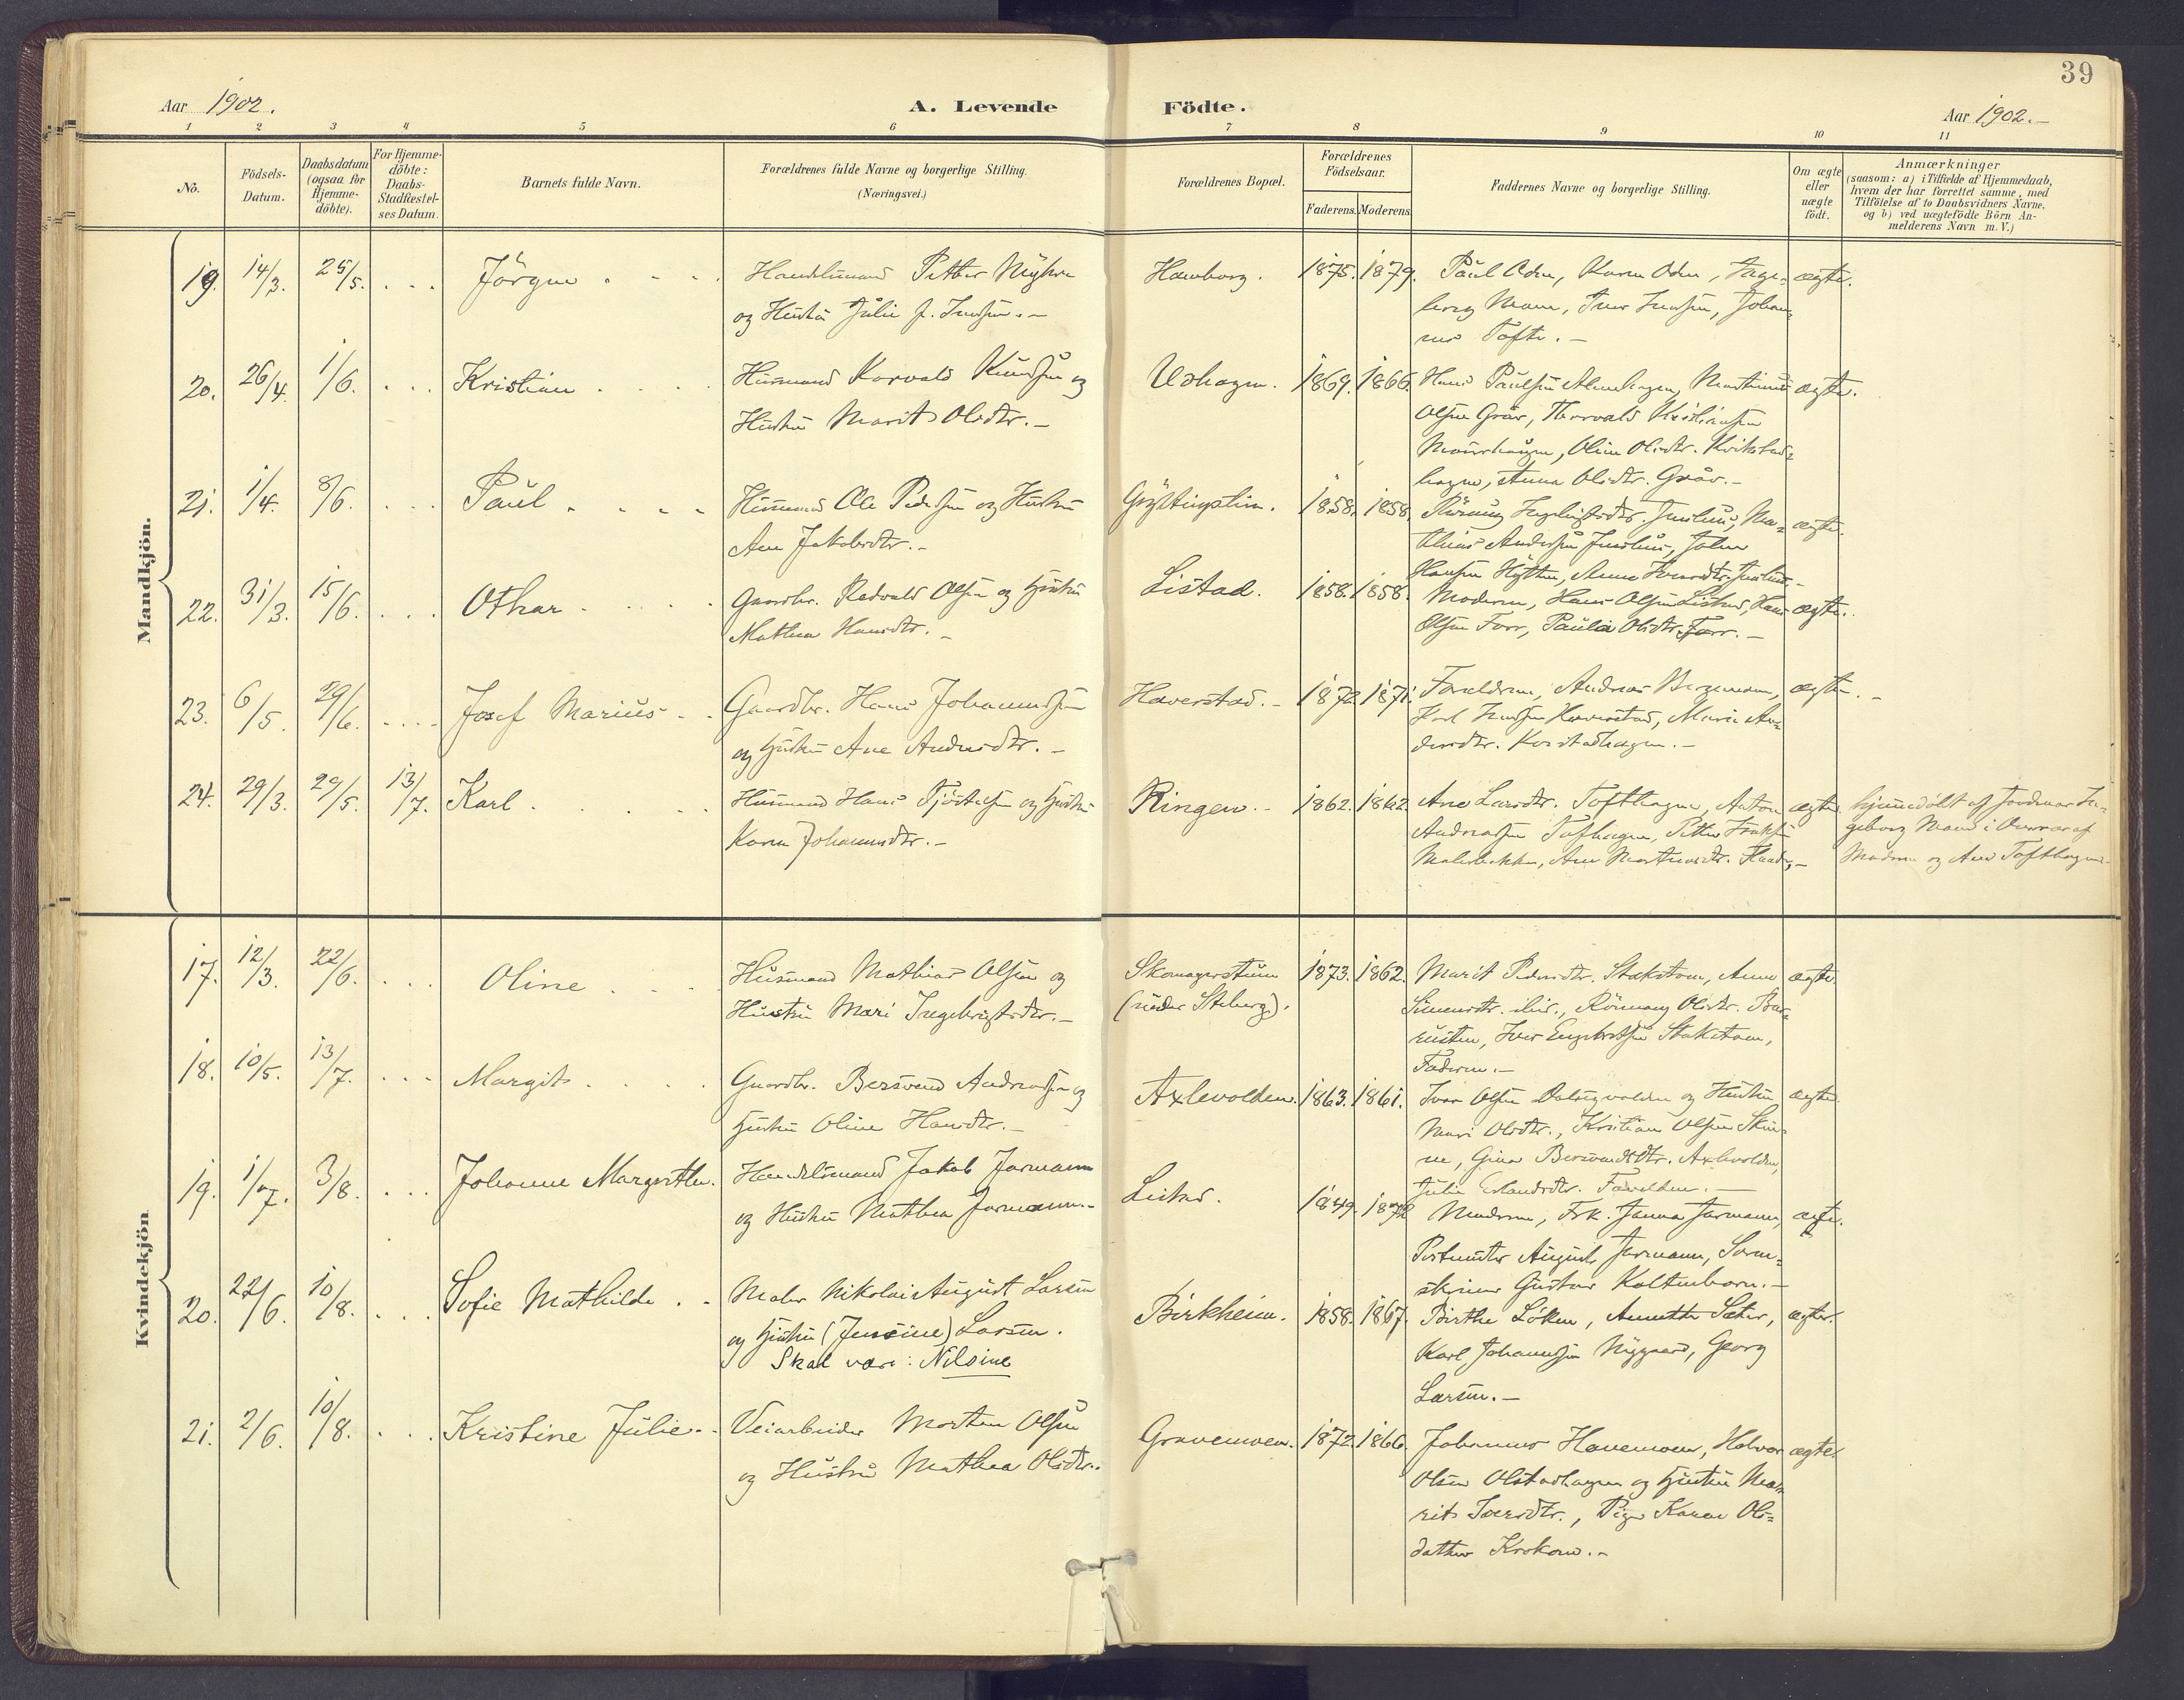 39
Aar 1902.
A. Levende Födte.
Aar 1902.-
1 2 3 4 5 6 7 8 9 10 11
No.
Födsels-
Datum.
Daabsdatum
(ogsaa for
Hjemme-
döbte).
For Hjemme-
döbte:
Daabs-
Stadfæstel-
ses Datum.
Barnets fulde Navn.
Forældrenes fulde Navne og borgerlige Stilling.
(Næringsvei.)
Forældrenes Bopæl.
Forældrenes
Födselsaar.
Faderens. Moderens.
Faddernes Navne og borgerlige Stilling.
Om ægte
eller
uægte
födt.
Anmærkninger
(saasom: a) i Tilfælde af Hjemmedaab,
hvem der har forrettet samme, med
Tilföielse af to Daabsvidners Navne,
og b) ved uægtefödte Börn An-
melderens Navn m. V.)
Mandkjön.
19. 14/3. 25/5. . . . Jörgen . . . Handelsmand Petter Nyhre
og Hustru Julie f. Ivershen.-
Hamborg. 1875. 1879. Paul Oden, Karen Oden, Inge-
borg Moen, Iver Iversen, Johan-
nes Tofte.-
ægte.
20. 26/4. 1/6. . . . Kristian . . . Husmand Korvald Knudsen og
Hustru Marit Olsdtr.-
Udhagen. 1869. 1866. Hans Paulsen
Olsen Graav, Thorvald Kristiansen
Olsdtr.
Anna Olsdtr. Graav.-
ægte.
21. 1/4. 8/6. . . . Paul . . . . Husmand Ole Pedersen og Hustru
Ane Jakobsdtr.-
1858. 1858. Rönnaug Ingebrigtsdtr.
Andersen
Hansen
ægte.
22. 31/3. 15/6. . . . Othar . . . . Gaardbr. Redvald Olsen og Hustru
Mathea Hansdtr.-
Listad. 1858. 1858. Moderen, Hans Olsen Listad, Hans
Olsen Forr, Paulia Olsdtr. Forr.-
ægte.
23. 6/5. 29/6. . . . . Josef Marius . . Gaardbr. Hans Johannessen
og Hustru Ane Andersdtr.-
Haverstad.- 1872. 1871. Forældrene, Andreas Bergemoen,
Karl Iversen Haverstad, Marie An-
dersdtr.
ægte.-
24. 29/3. 29/5. 13/7. Karl . . . Husmand Hans og Hustru
Karen Johannesdtr.-
Ringen.- 1862. 1862 Ane Larsdtr. Tofthagen, Anton
Andreassen Tofthagen, Petter
Ane Martinusdtr.
ægte. hjemmedöbt af Jordmor In-
geborg Moen i Overvær af
Moderen og Ane Tofthagen.-
Kvindekjön
17. 12/3. 22/6. . . . Oline . . . Husmand Mathias Olsen og
Hustru Mari Ingebrigtsdtr.-
Skomagerstuen
(under Steberg).
1873. 1862. Marit Pedersdtr. Stokstoen, Anne
Simensdtr. ibid., Rönnaug Olsdtr.
Iver Engebretsen Stokstoen,
Faderen.-
ægte.
18. 10/5. 13/7. . . . Margit . . . . Gaardbr. Bersvend Andreassen og
Hustru Oline Hansdtr.-
Axlevolden. 1863. 1861. Iver Olsen og Hustru
Mari Olsdtr., Kristian Olsen
Gina Bersvendsdtr. Axlevolden,
Julie Erlandsdtr.
ægte.
19. 1/7. 3/8. . . . Johanne Margrethe. Handelsmand Jakob Jarmann
og Hustru Mathea Jarmann.-
Listad. 1849. 1872 Moderen, Frk. Janna Jarmann,
Postmester August Jarmann, Soren-
skriver Gustav Koltenborn.-
ægte.
20. 22/6. 10/8. . . . Sofie Mathilde . . Maler Nikolai August Larsen
og Hustru (Jensine) Larsen.
Skal være: Nilsine
Birkheim. 1858. 1867. Birthe Löken, Annette Sæter,
Karl Johannesen Nygaard, Georg
Larsen.-
ægte.
21. 2/6. 10/8. . . . Kristine Julie . . Veiarbeider Morten Olsen
og Hustru Mathea Olsdtr.
Gravemoen. 1872. 1866. Johannes Hanemoen, Halvor
Olsen Olstadhagen og Hustru Ma-
rit Iversdtr., Pige Karen Ols-
datter Krokom.-
ægte.